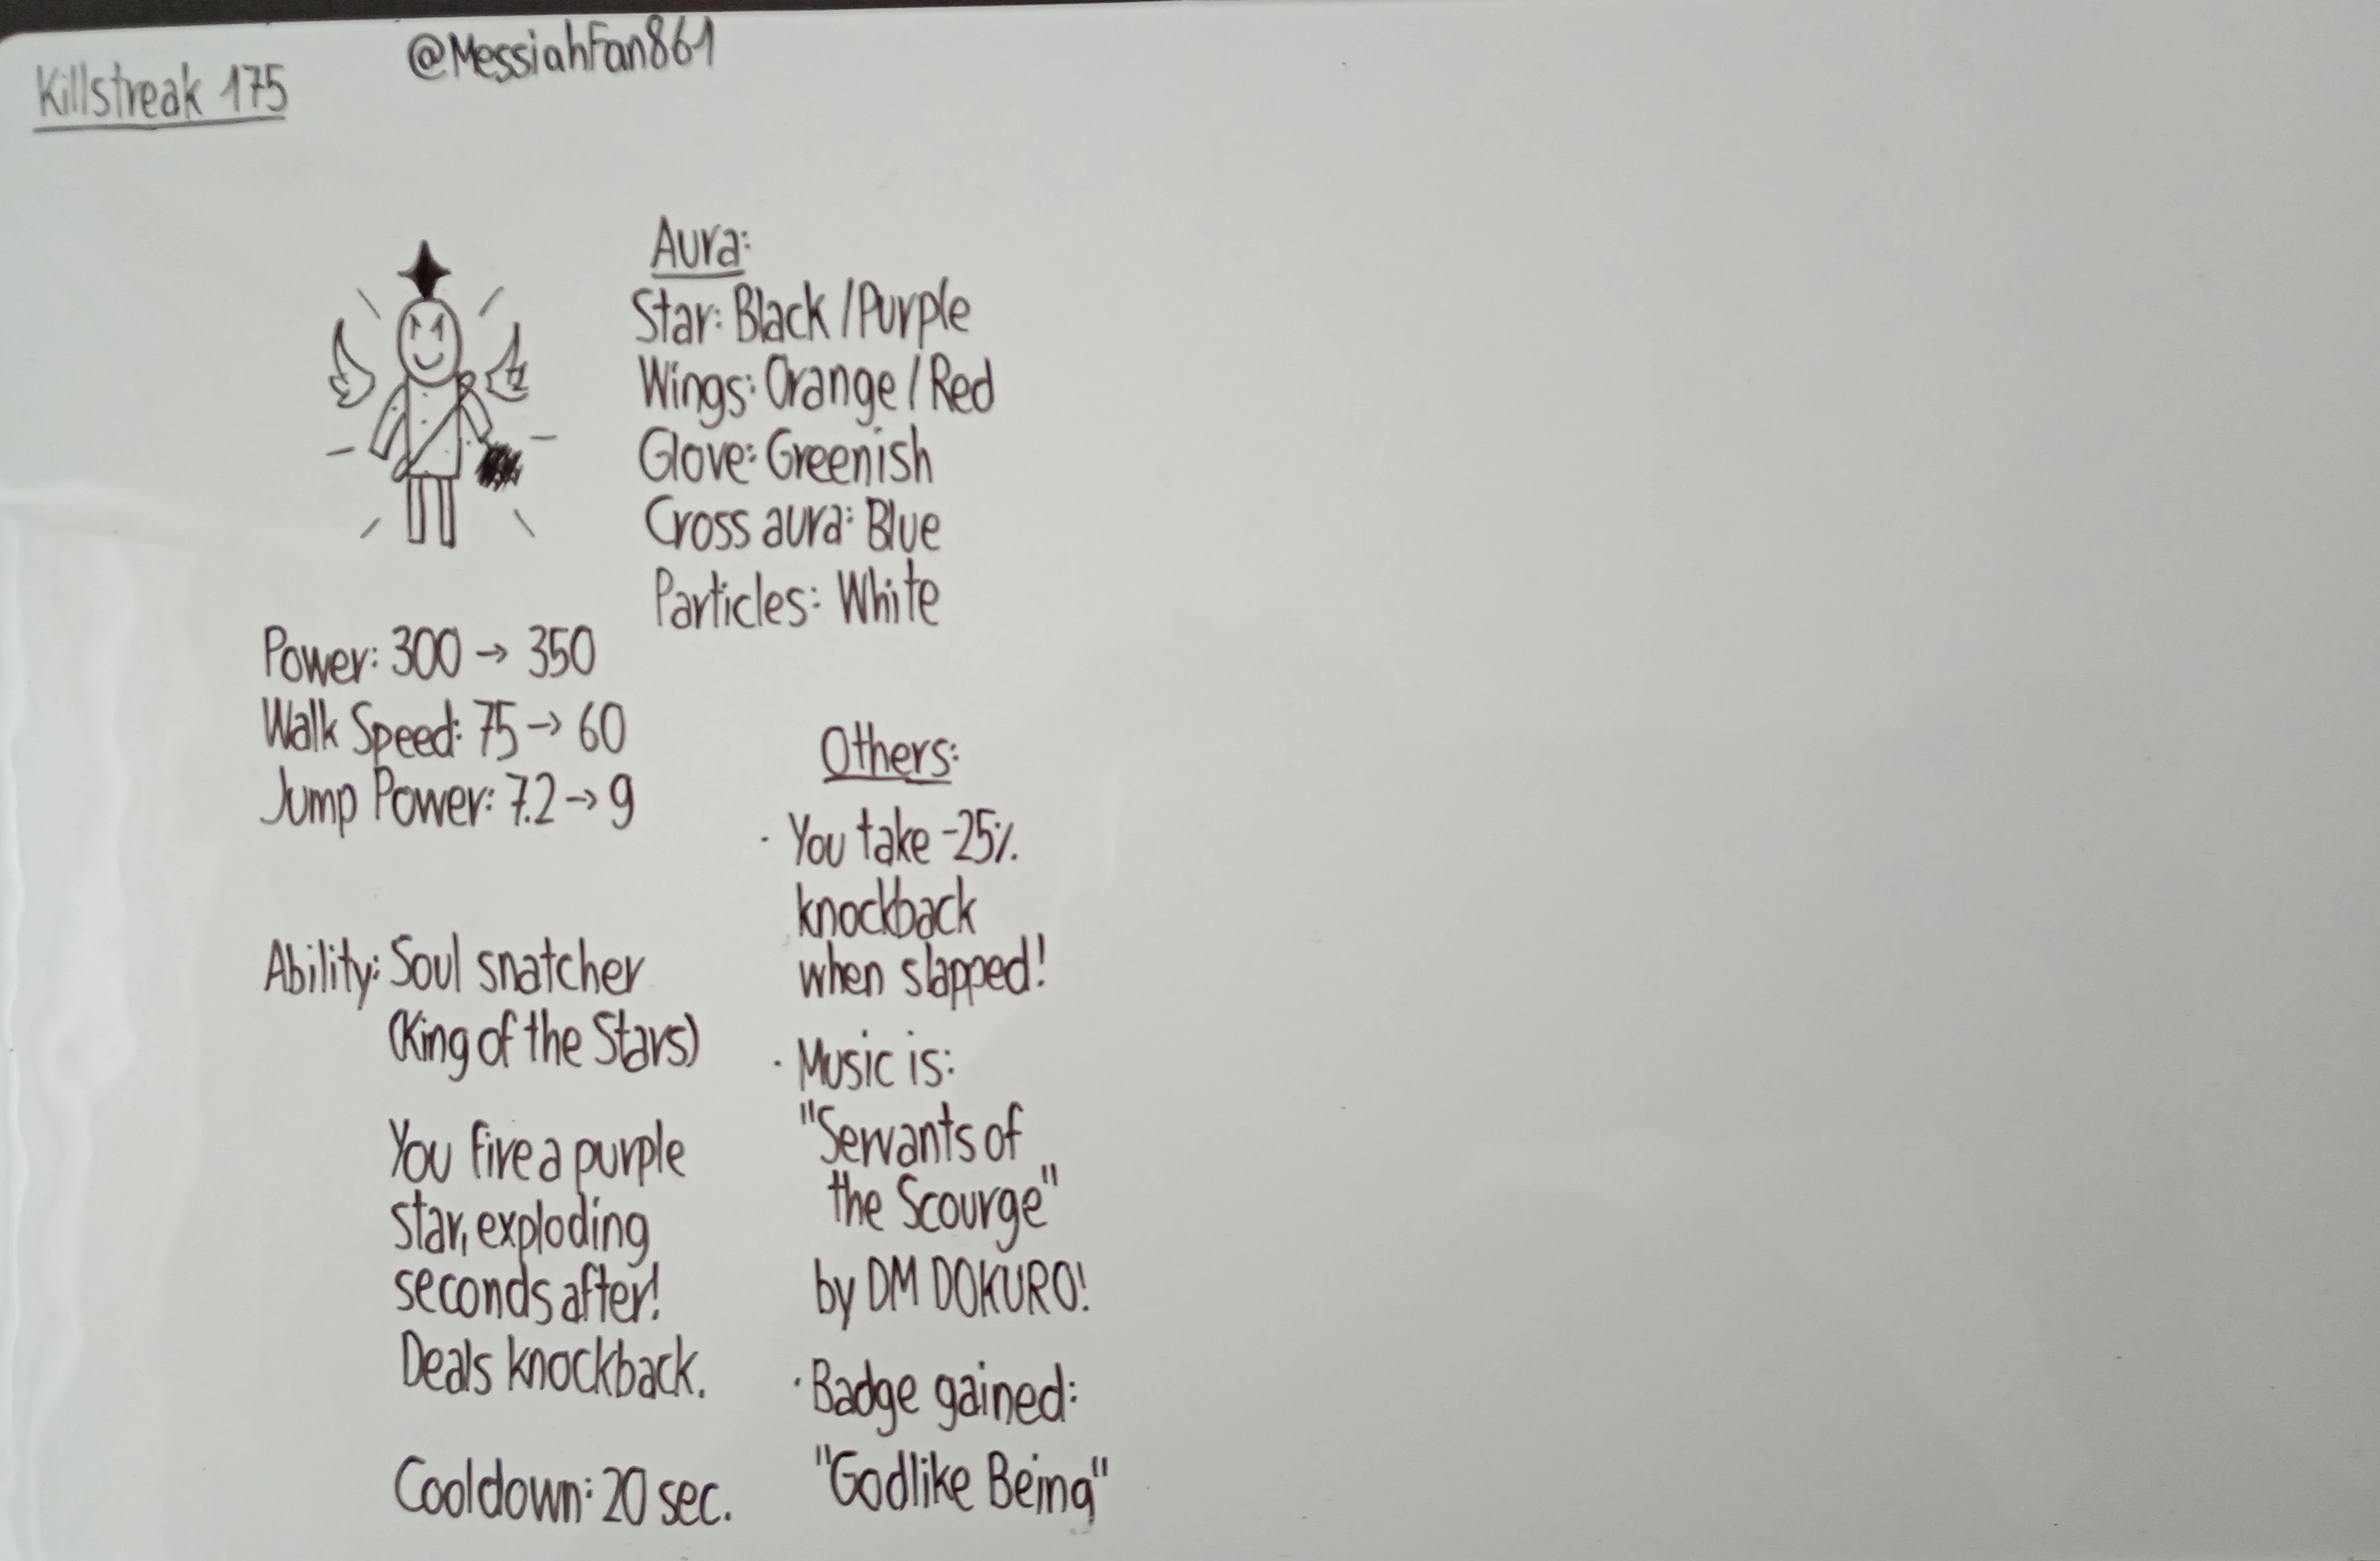 Killstreak 175
@MessiahFan861
Aura:
Star: Black/Purple
Wings: Orange/Red
Glove: Greenish
Cross aura: Blue
Particles: White
Power: 300 → 350
Walk Speed: 75 → 60
Jump Power: 7.2 → 9
Ability: Soul snatcher
(King of the Stars)
You fire a purple
star, exploding
seconds after!
Deals knockback.
Cooldown: 20 sec.
Others:
· You take -25%
knockback
when slapped!
· Music is:
"Servants of
the Scourge"
by DM DOKURO!
· Badge gained:
"Godlike Being"